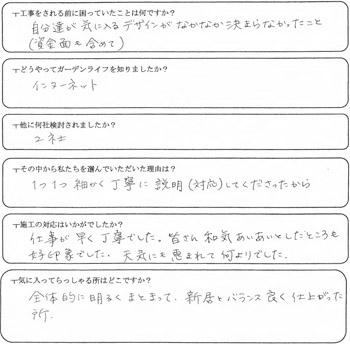 ▽工事をされる前に困っていたことは何ですか？
自分達が気に入るデザインがなかなか決まらなかったこと
(資金面も含めて)
▽どうやってガーデンライフを知りましたか？
インターネット
▽他に何社検討されましたか？
2社
▽その中から私たちを選んでいただいた理由は？
1つ1つ細かく丁寧に説明(対応)してくださったから
▽施工の対応はいかがでしたか？
仕事が早く丁寧でした。皆さん和気あいあいとしたところも
好印象でした。天気にも恵まれて何よりでした。
▽気に入ってらっしゃる所はどこですか？
全体的に明るくまとまって、新居とバランス良く仕上がった
所.